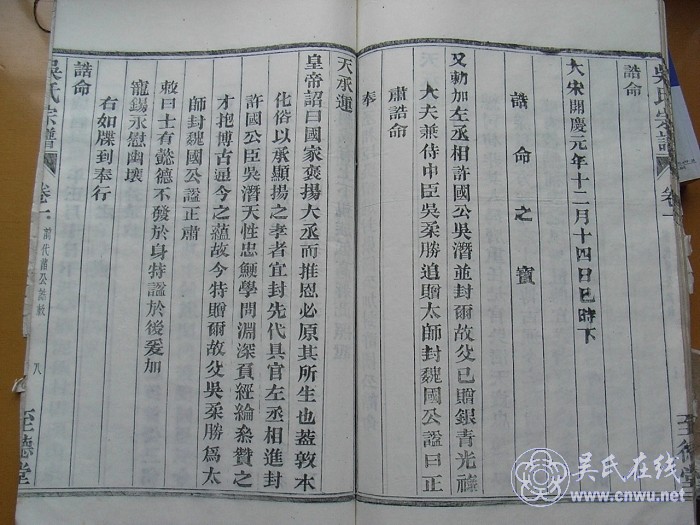 吳氏宗譜
卷一
至德堂
誥命
大宋開慶元年十二月十四日巳時下
誥命之寶
又勅加左丞相許國公吳潛並封爾故父已贈銀青光祿
大夫兼侍中臣吳柔勝追贈太師封魏國公謚曰正
肅誥命
奉
天承運
皇帝詔曰國家褒揚大丞而推恩必原其所生也蓋敦本
化俗以承顯揚之孝者宜封先代具官左丞相進封
許國公臣吳潛天性忠鯁學問淵深負經綸叅贊之
才抱博古通今之蘊故今特贈爾故父吳柔勝爲太
師封魏國公謚正肅
敕曰士有懿德不發於身特謚於後爰加
寵錫永慰幽壤
右如牒到奉行
誥命
吳氏宗譜
卷一
八
至德堂
吴氏在线
www.cnwu.net